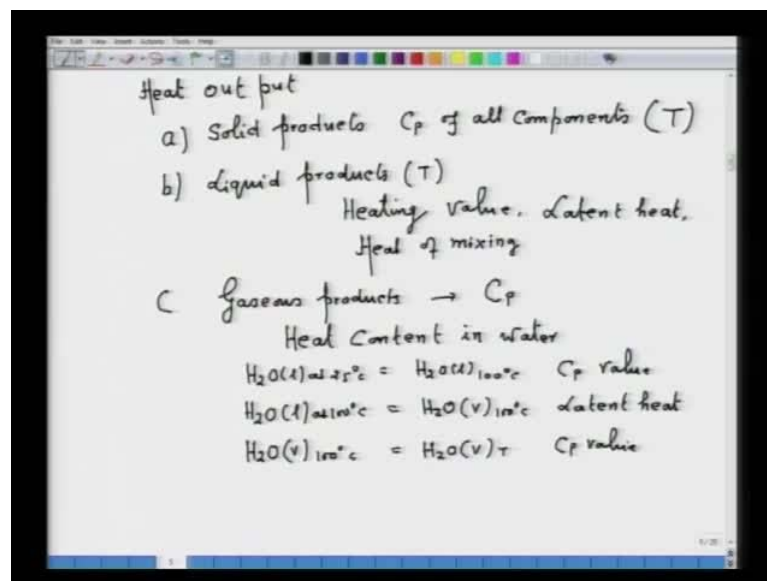 File Edit View Insert Actions Tools Help
Heat out put
a) Solid products Cp of all Components (T)
b) Liquid products (T)
Heating value. Latent heat.
Heat of mixing
C Gaseous products → Cp
Heat Content in water
H2O(l) at 25°c = H2O(l) 100°c Cp value
H2O(l) at 100°c = H2O(v) 100°c Latent heat
H2O(v) 100°c = H2O(v) T Cp value